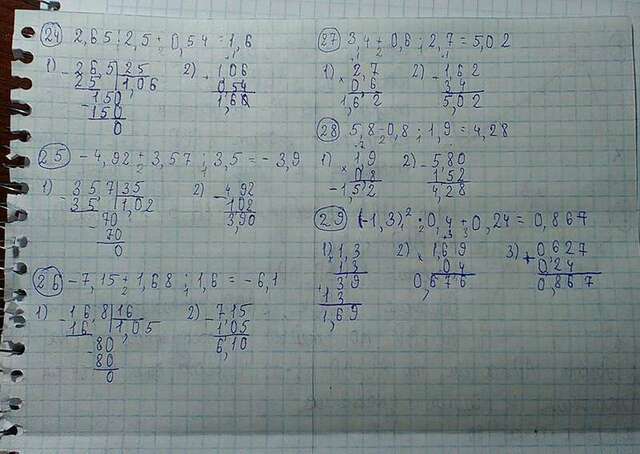 24 2,65 : 2,5 + 0,54 = 1,6
1) - 26,5 | 25
25 | 1,06
- 150
150
0
2) + 1,06
0,54
1,60
25 -4,92 + 3,57 : 3,5 = -3,9
1) - 35,7 | 35
35 | 1,02
- 70
70
0
2) - 4,92
1,02
3,90
26 -7,15 + 1,68 : 1,6 = -6,1
1) - 16,8 | 16
16 | 1,05
- 80
80
0
2) - 7,15
1,05
6,10
27 3,4 + 0,6 · 2,7 = 5,02
1) × 2,7
0,6
1,62
2) + 1,62
3,4
5,02
28 5,8 - 0,8 · 1,9 = 4,28
1) × 1,9
0,8
1,52
2) - 5,80
1,52
4,28
29 (-1,3)² · 0,4 + 0,24 = 0,867
1) 1,3
1,3
39
+ 13
1,69
2) × 1,69
0,4
0,676
3) + 0,627
0,24
0,867